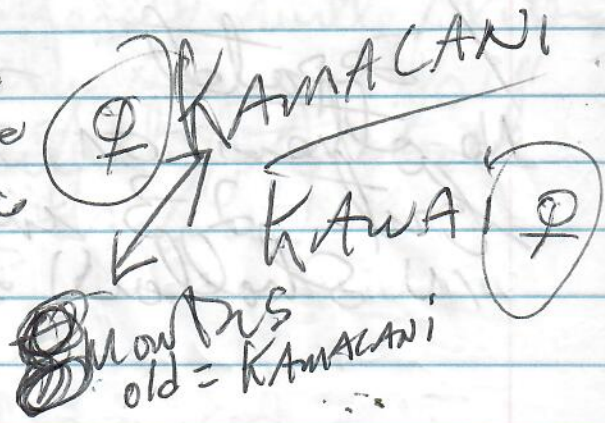 ♀ KAMALANI
KAWAI ♀
8 months
old = KAMALANI